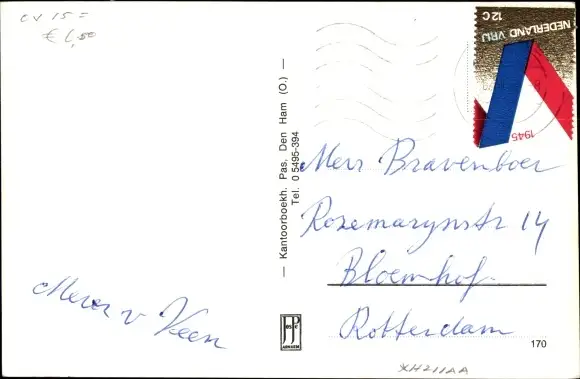 CV 15 =
€ 1,50
12C
NEDERLAND VRIJ
1945
— Kantoorboekh. Pas. Den Ham (O.) —
Tel. 0 5495-394
Mevr Bravenboer
Rozemarynstr 14
Bloemhof
Rotterdam
Mevr v Veen
170
XH211AA